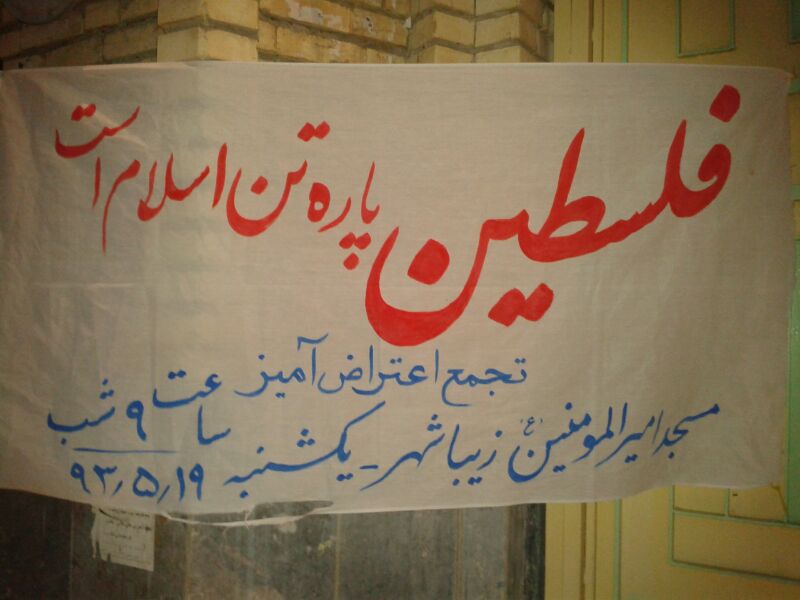 فلسطین پاره تن اسلام است
تجمع اعتراض آمیز
مسجد امیرالمومنین (ع) زیباشهر - یکشنبه ساعت ۹ شب
۹۳/۵/۱۹